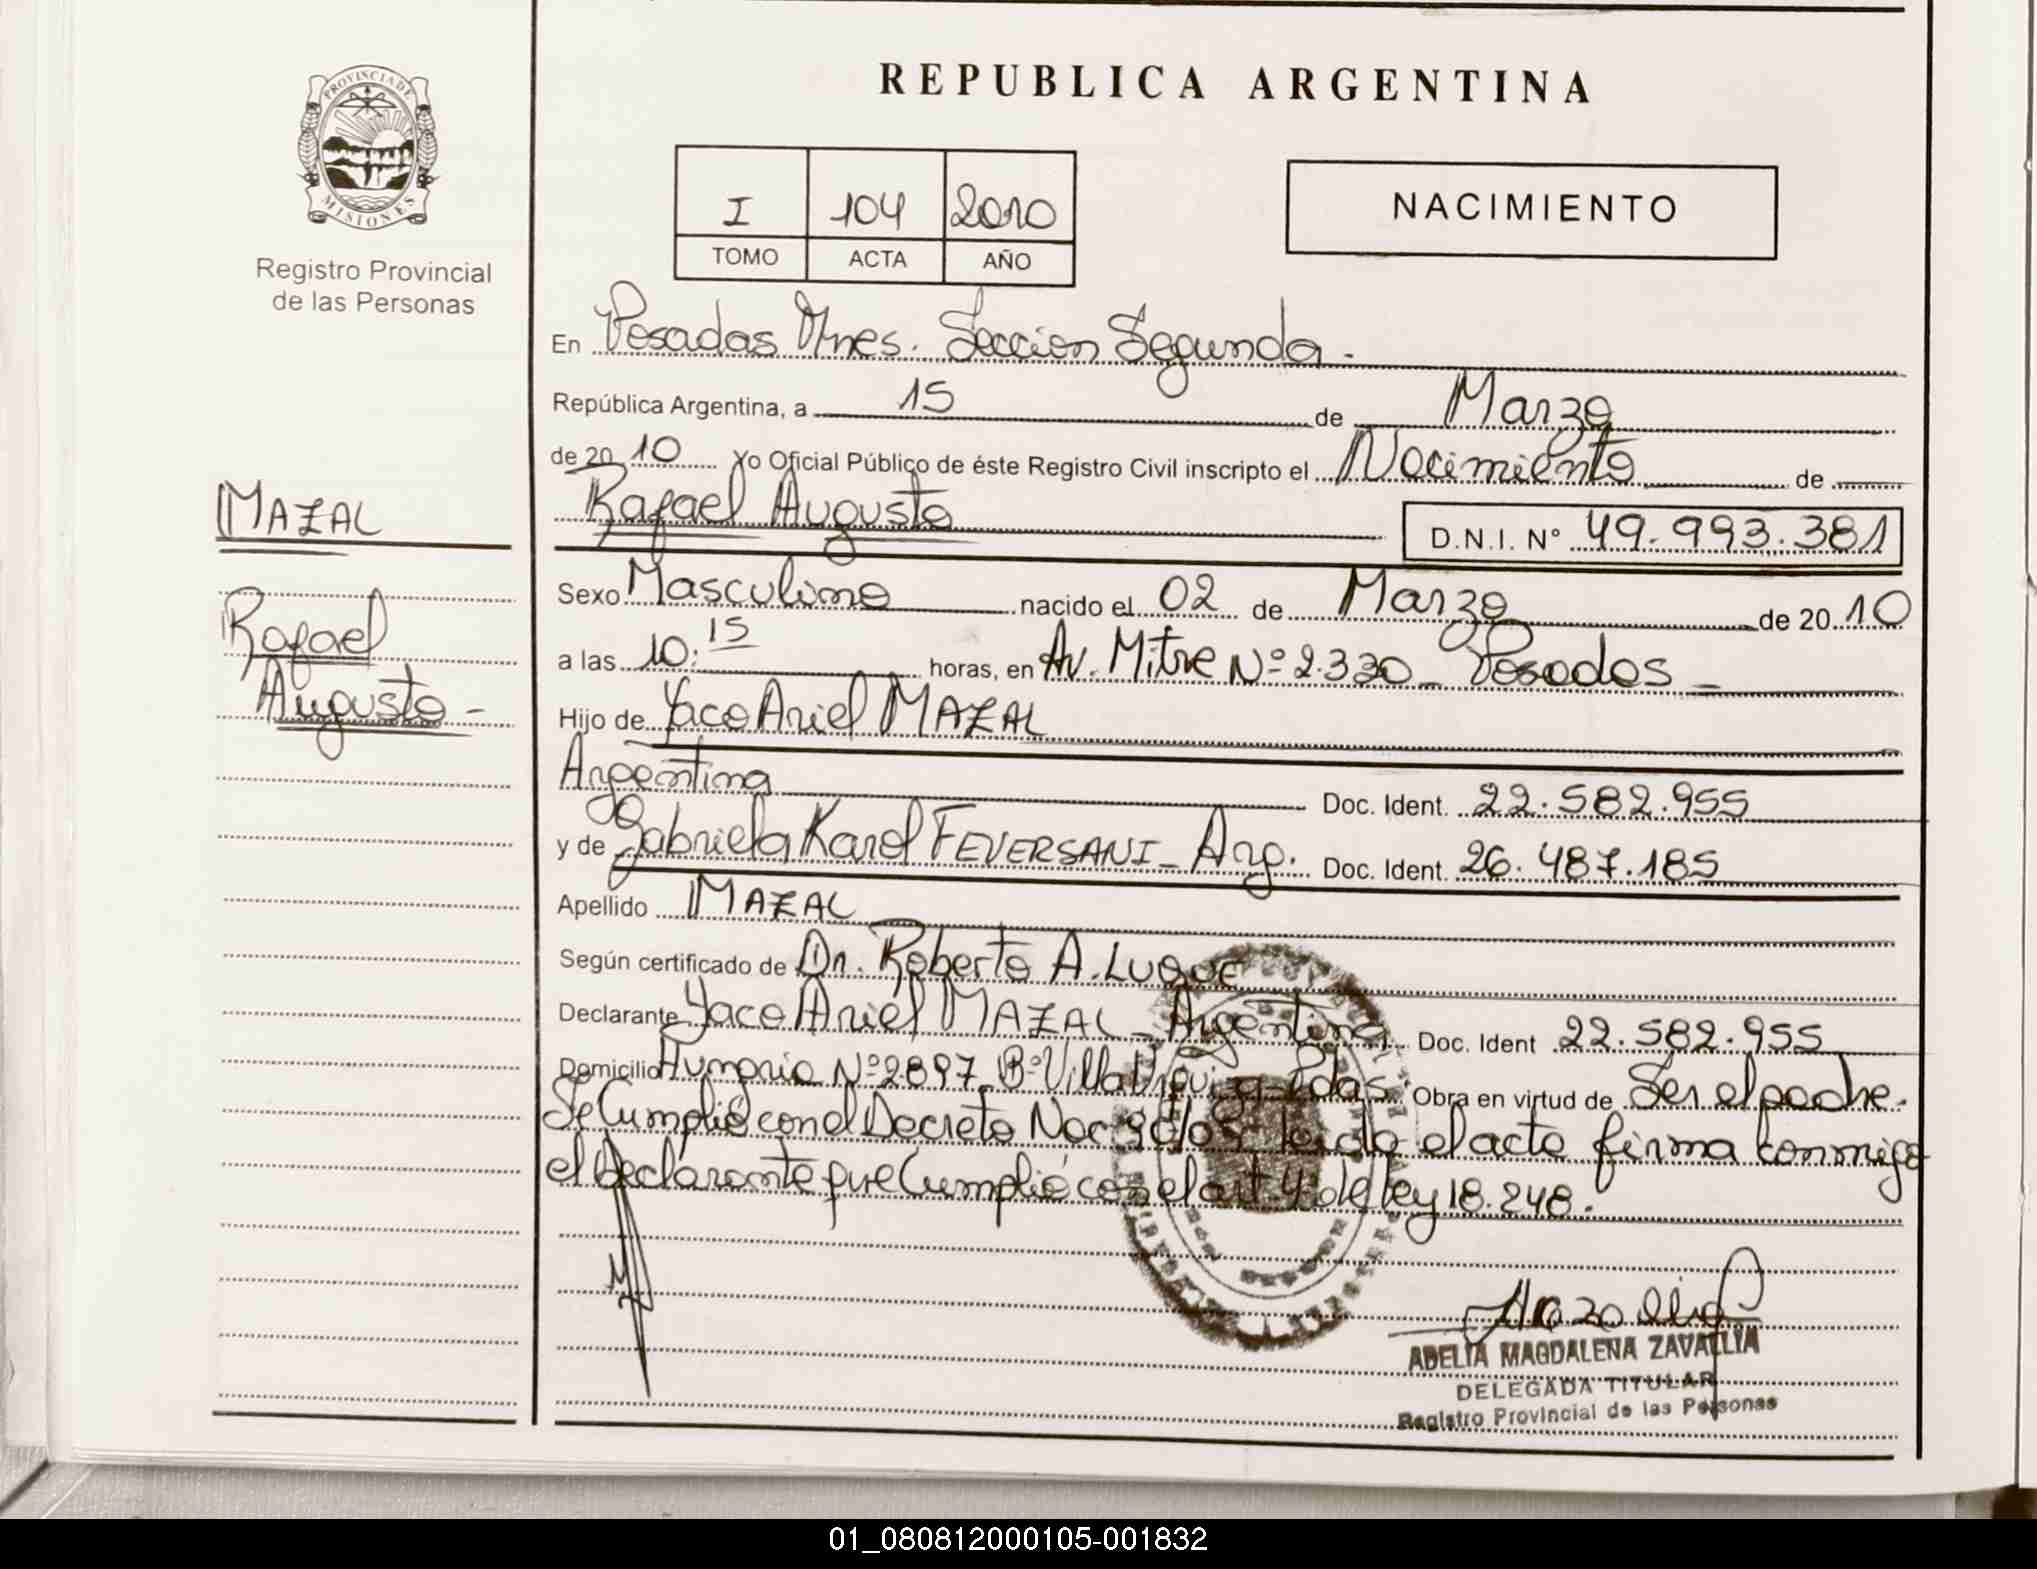 REPUBLICA ARGENTINA
PROVINCIA DE
MISIONES
Registro Provincial
de las Personas
I 104 2010
TOMO ACTA AÑO
NACIMIENTO
En Posadas Mnes. Seccion Segunda.-
República Argentina, a 15 de Marzo
de 20 10 Yo Oficial Público de éste Registro Civil inscripto el Nacimiento de
Rafael Augusto D.N.I. N° 49.993.381
MAZAL
Rafael
Augusto-
Sexo Masculino nacido el 02 de Marzo de 20 10
a las 10:15 horas, en Av. Mitre Nº 2.330- Posadas-
Hijo de Yaco Ariel MAZAL
Argentina Doc. Ident. 22.582.955
y de Gabriela Karol FEVERSANI- Arg. Doc. Ident. 26.487.185
Apellido MAZAL
Según certificado de Dr. Roberto A. Luque
Declarante Yaco Ariel MAZAL- Argentina Doc. Ident 22.582.955
Domicilio Nº 2897 Bº Villa Pdas. Obra en virtud de Ser el padre.
Se Cumplió con el Decreto Nac. 90/05 leida el acta firma conmigo
el Declarante que Cumplió con el art. 4º de ley 18.248.
ADELIA MAGDALENA ZAVALLIA
DELEGADA TITULAR
Registro Provincial de las Personas
01_080812000105-001832